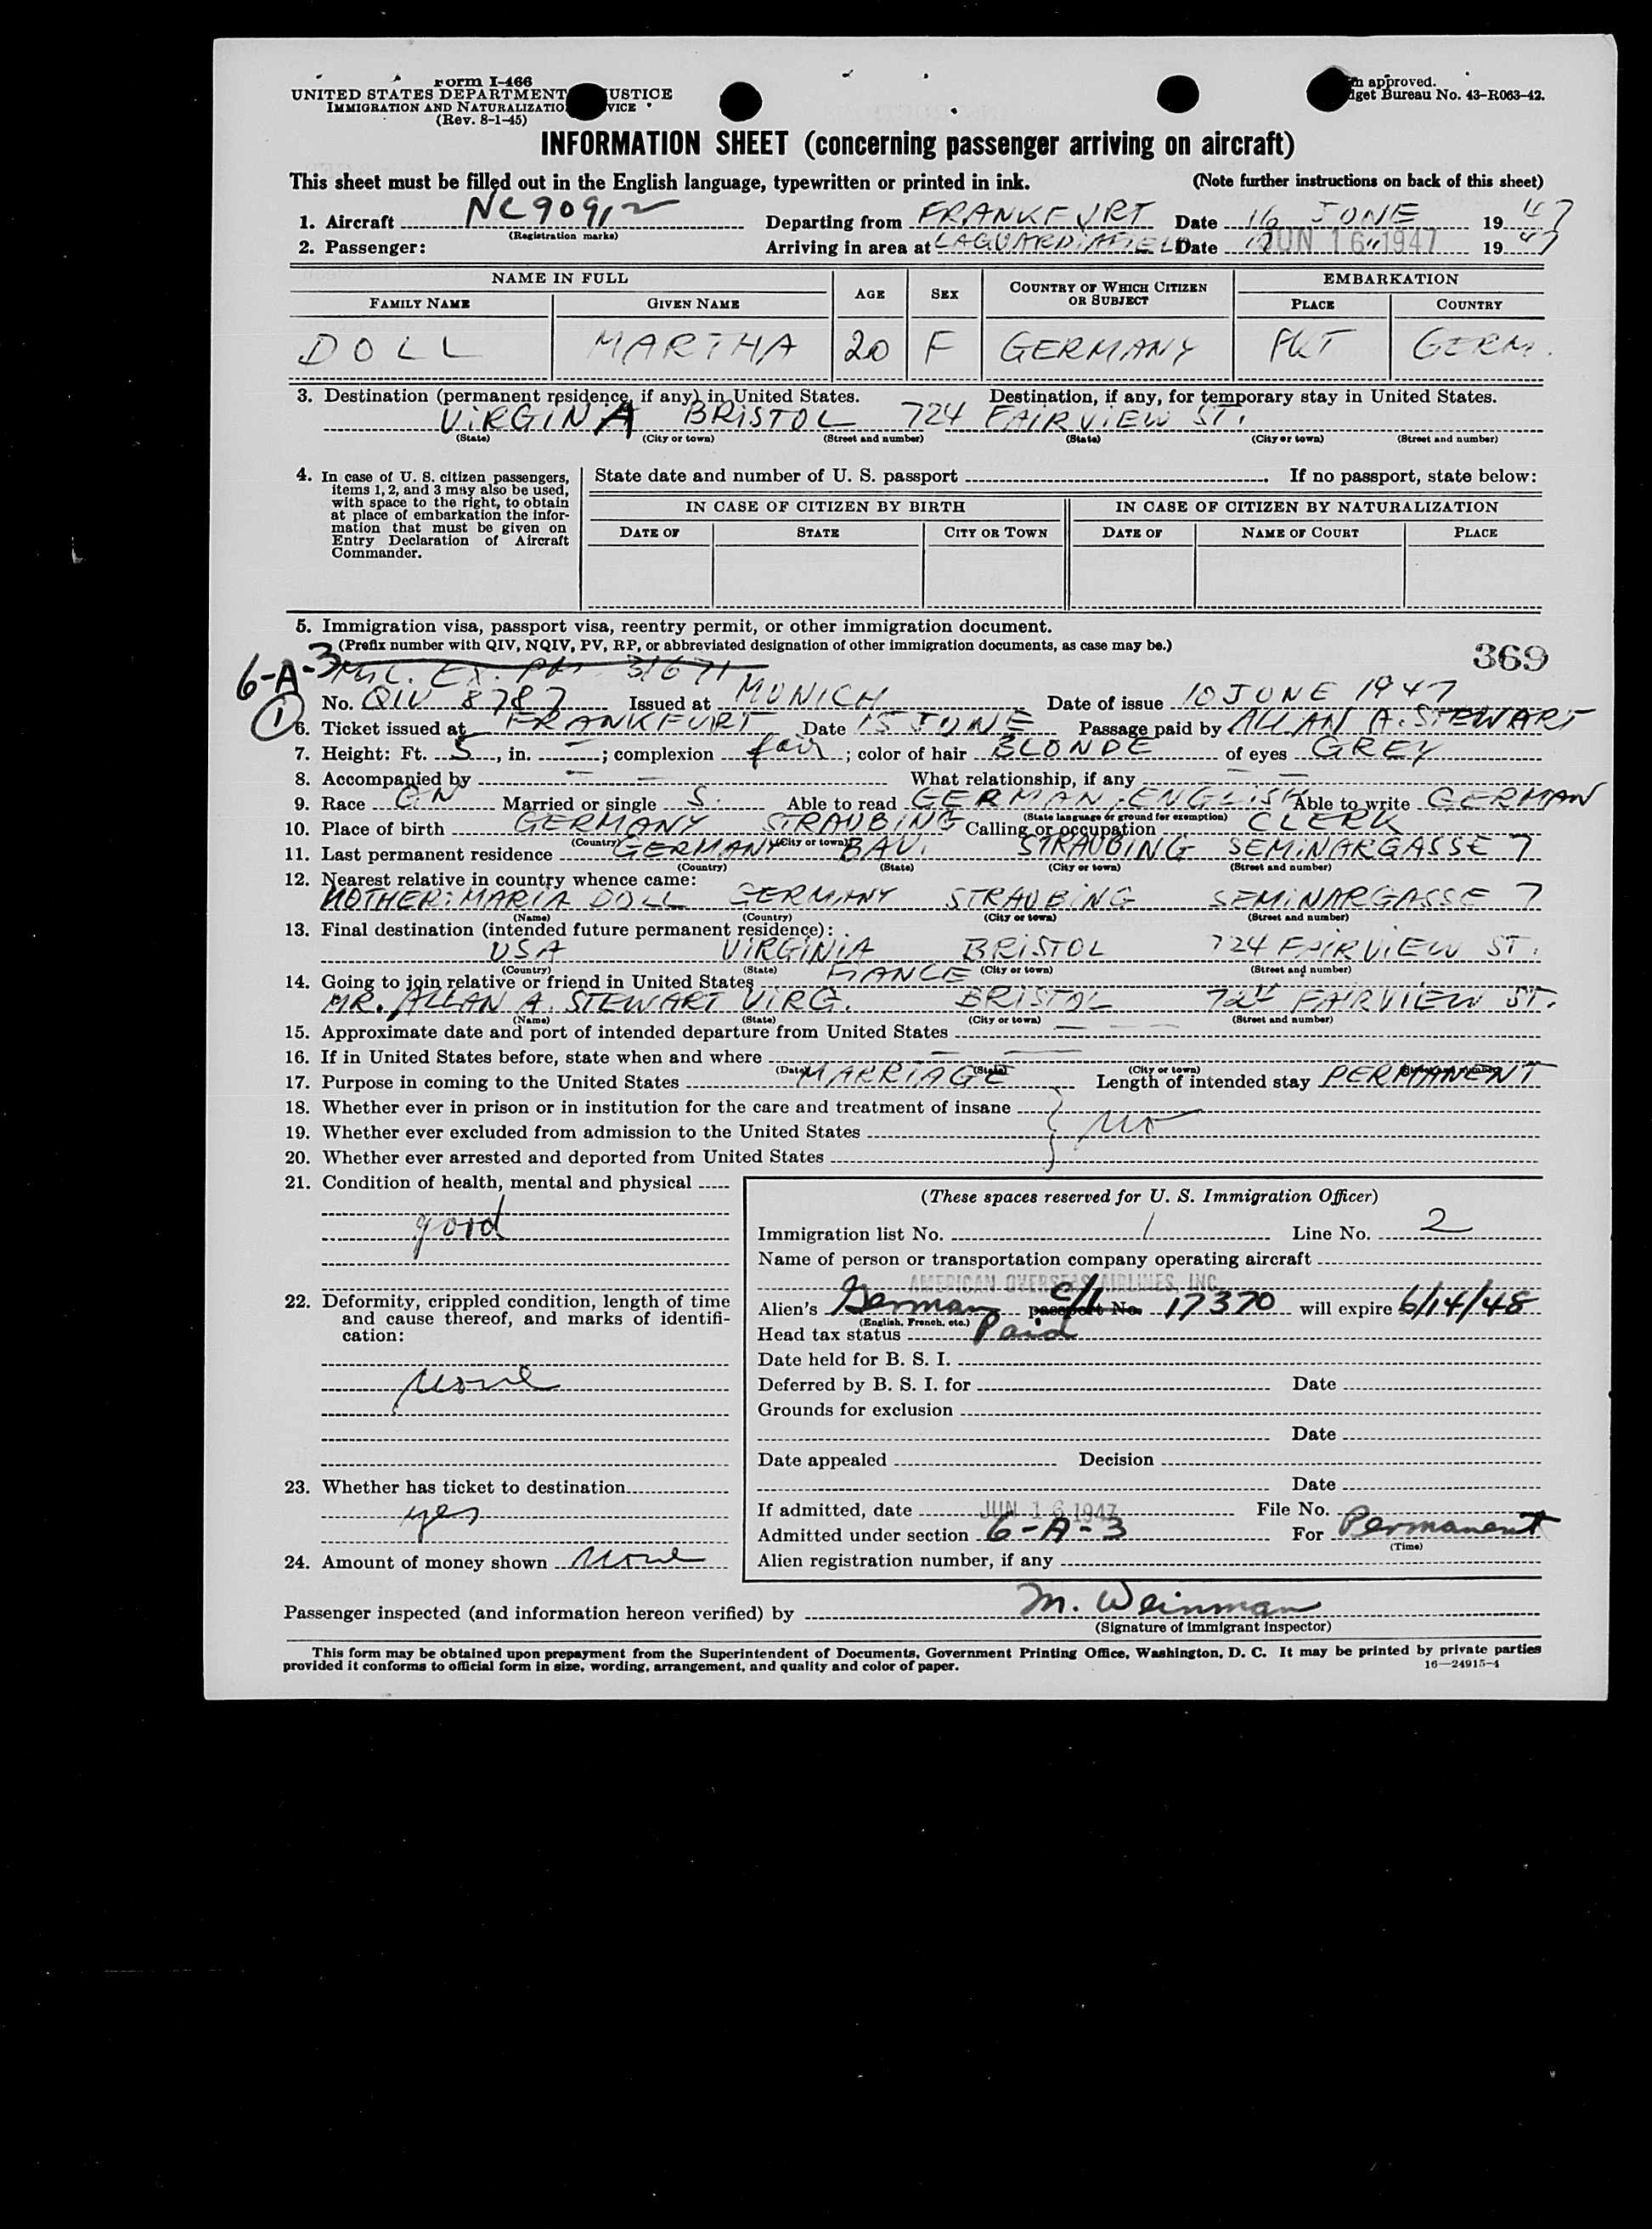 Form I-466
UNITED STATES DEPARTMENT USTICE
IMMIGRATION AND NATURALIZATIO VICE
(Rev. 8-1-45)
approved.
get Bureau No. 43-R063-42.
INFORMATION SHEET (concerning passenger arriving on aircraft)
This sheet must be filled out in the English language, typewritten or printed in ink. (Note further instructions on back of this sheet)
1. Aircraft NC90912 Departing from FRANKFURT Date 16 JUNE 1947
(Registration marks)
2. Passenger: Arriving in area at LAGUARDIAFIELD Date JUN 16 1947 1947
NAME IN FULL AGE SEX COUNTRY OF WHICH CITIZEN OR SUBJECT EMBARKATION
FAMILY NAME GIVEN NAME PLACE COUNTRY
DOLL MARTHA 20 F GERMANY GERM.
3. Destination (permanent residence, if any) in United States. Destination, if any, for temporary stay in United States.
VIRGINA BRISTOL 724 FAIRVIEW ST.
(State) (City or town) (Street and number) (State) (City or town) (Street and number)
4. In case of U. S. citizen passengers, items 1, 2, and 3 may also be used, with space to the right, to obtain at place of embarkation the information that must be given on Entry Declaration of Aircraft Commander.
State date and number of U. S. passport . If no passport, state below:
IN CASE OF CITIZEN BY BIRTH IN CASE OF CITIZEN BY NATURALIZATION
DATE OF STATE CITY OR TOWN DATE OF NAME OF COURT PLACE
5. Immigration visa, passport visa, reentry permit, or other immigration document.
(Prefix number with QIV, NQIV, PV, RP, or abbreviated designation of other immigration documents, as case may be.)
369
6-A-3 31671
No. QIV 8787 Issued at MUNICH Date of issue 10 JUNE 1947
1
6. Ticket issued at FRANKFURT Date 15 JUNE Passage paid by ALLAN A. STEWART
7. Height: Ft. 5, in. -; complexion fair; color of hair BLONDE of eyes GREY
8. Accompanied by - - What relationship, if any - -
9. Race Married or single S. Able to read GERMAN, ENGLISH Able to write GERMAN
(State language or ground for exemption)
10. Place of birth GERMANY STRAUBING Calling or occupation CLERK
(Country) (City or town)
11. Last permanent residence GERMANY BAV. STRAUBING SEMINARGASSE 7
(Country) (State) (City or town) (Street and number)
12. Nearest relative in country whence came:
MOTHER: MARIA DOLL GERMANY STRAUBING SEMINARGASSE 7
(Name) (Country) (City or town) (Street and number)
13. Final destination (intended future permanent residence):
USA VIRGINIA BRISTOL 724 FAIRVIEW ST.
(Country) (State) (City or town) (Street and number)
14. Going to join relative or friend in United States FIANCE
MR. ALLAN A. STEWART VIRG. BRISTOL 724 FAIRVIEW ST.
(Name) (State) (City or town) (Street and number)
15. Approximate date and port of intended departure from United States - -
16. If in United States before, state when and where - -
(Date) (State) (City or town) (Street and number)
17. Purpose in coming to the United States MARRIAGE Length of intended stay PERMANENT
18. Whether ever in prison or in institution for the care and treatment of insane
19. Whether ever excluded from admission to the United States no
20. Whether ever arrested and deported from United States
21. Condition of health, mental and physical
good
22. Deformity, crippled condition, length of time and cause thereof, and marks of identification:
None
23. Whether has ticket to destination
yes
24. Amount of money shown None
(These spaces reserved for U. S. Immigration Officer)
Immigration list No. 1 Line No. 2
Name of person or transportation company operating aircraft
AMERICAN OVERSEAS AIRLINES, INC.
Alien's German passport No. 17370 will expire 6/14/48
(English, French, etc.)
Head tax status Paid
Date held for B. S. I.
Deferred by B. S. I. for Date
Grounds for exclusion
Date
Date appealed Decision
Date
If admitted, date JUN 16 1947 File No.
Admitted under section 6-A-3 For Permanent
(Time)
Alien registration number, if any
Passenger inspected (and information hereon verified) by M. Weinman
(Signature of immigrant inspector)
This form may be obtained upon prepayment from the Superintendent of Documents, Government Printing Office, Washington, D. C. It may be printed by private parties
provided it conforms to official form in size, wording, arrangement, and quality and color of paper.
16—24915-4